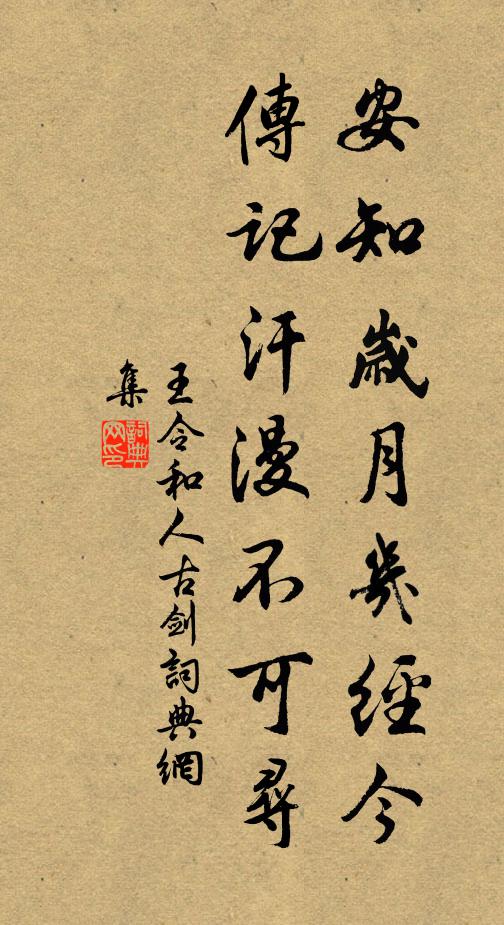 安知歲月幾經今
傳記汗漫不可尋
王令和人古劍詞典網
集
詞典网印